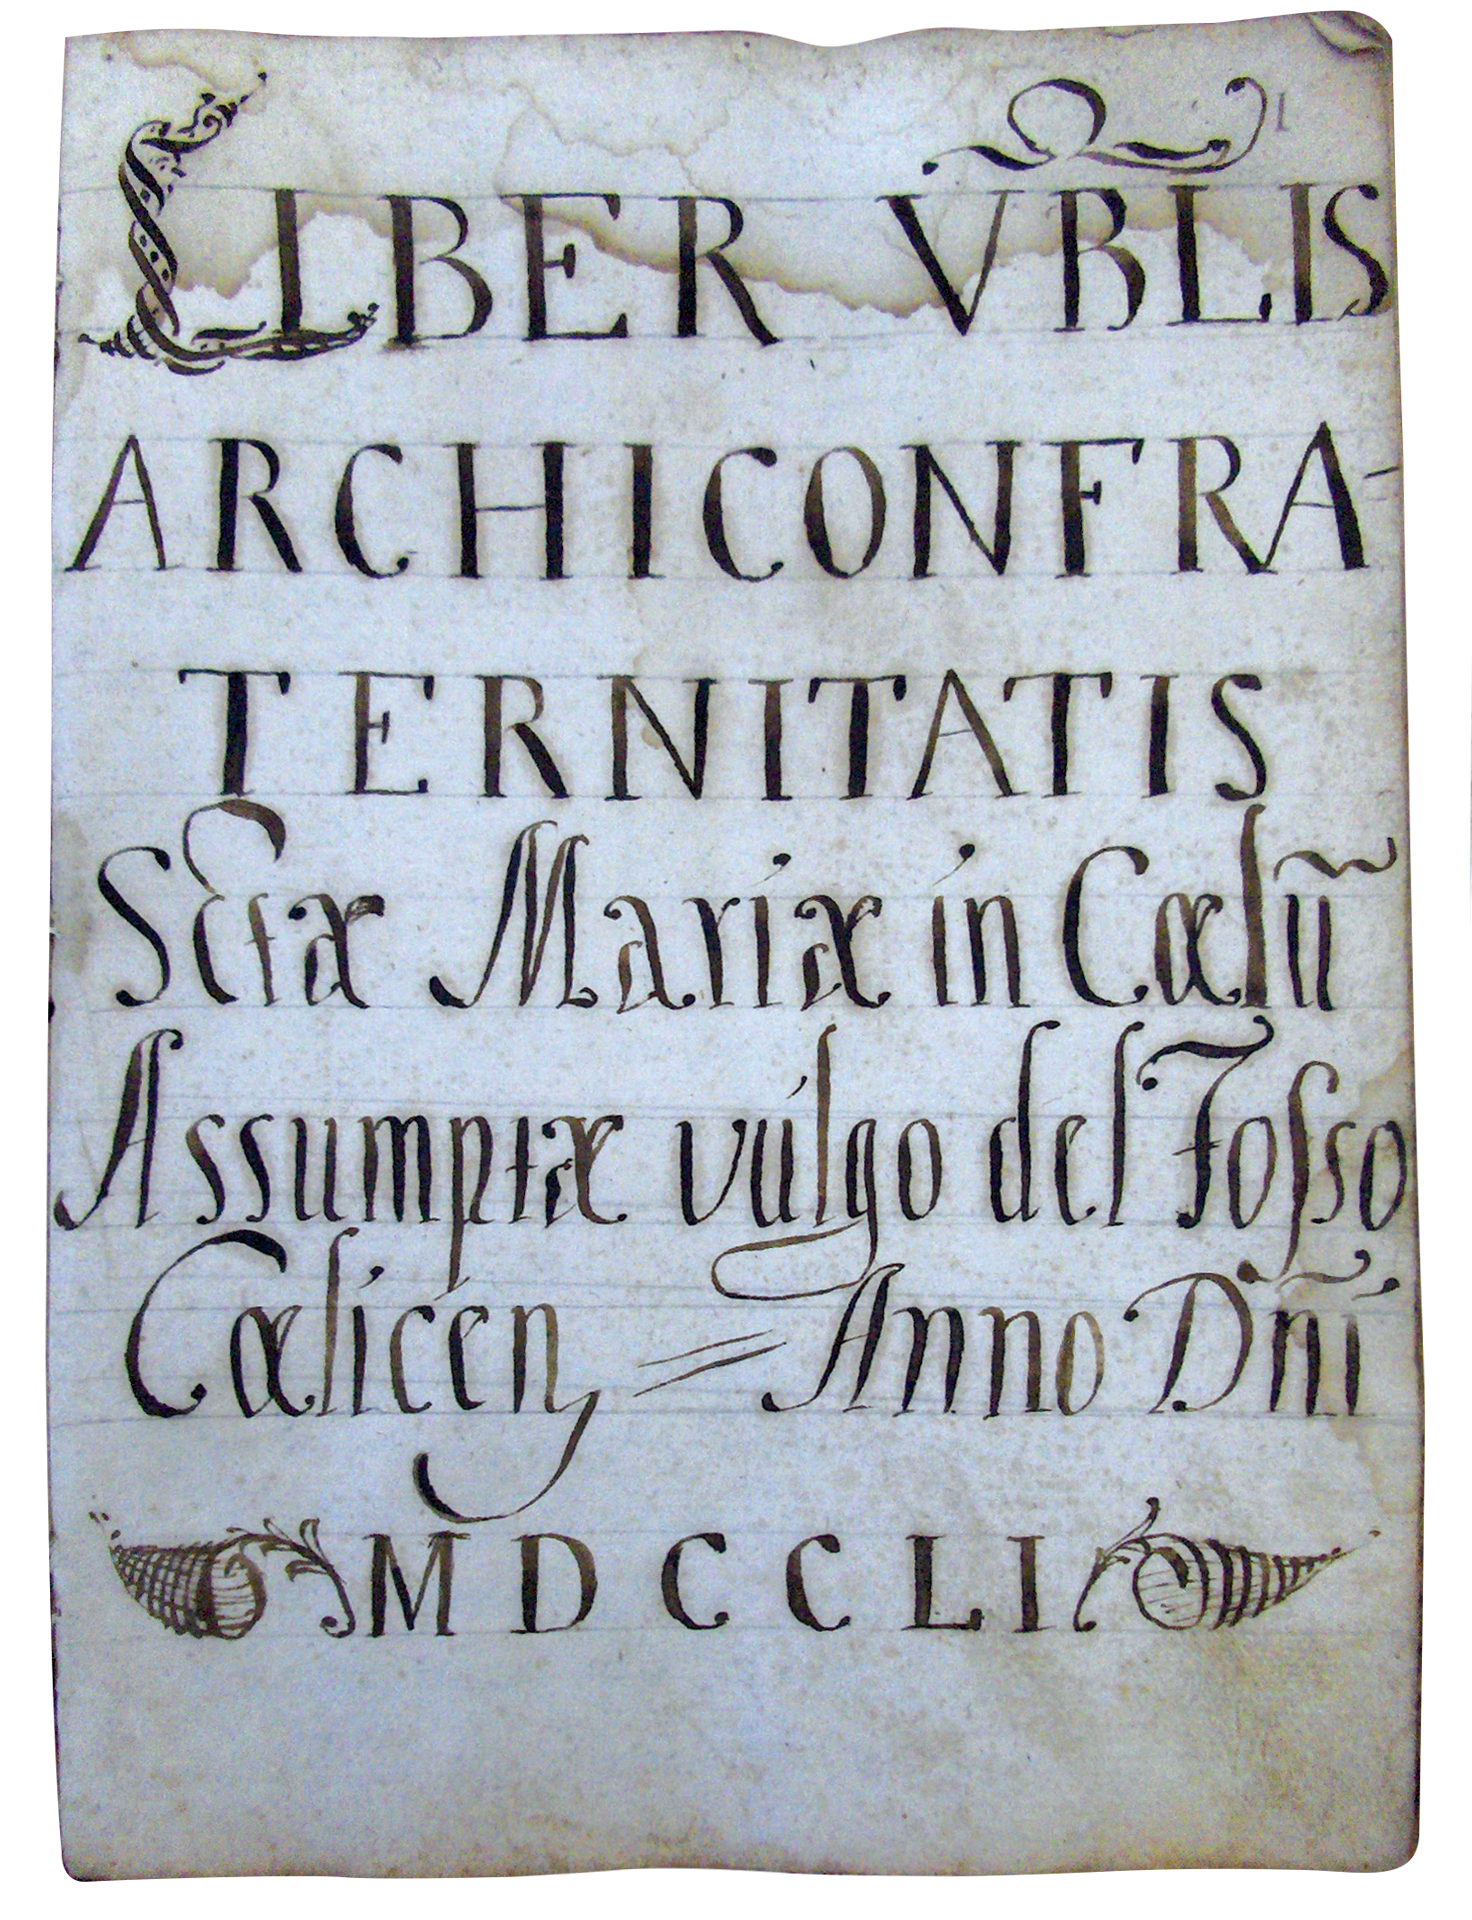 1
LIBER VBLIS
ARCHICONFRA-
TERNITATIS
Sctæ Mariæ in Cœlũ
Assumptæ vulgo del Fosso
Cœlicen = Anno Dñi
MDCCLI